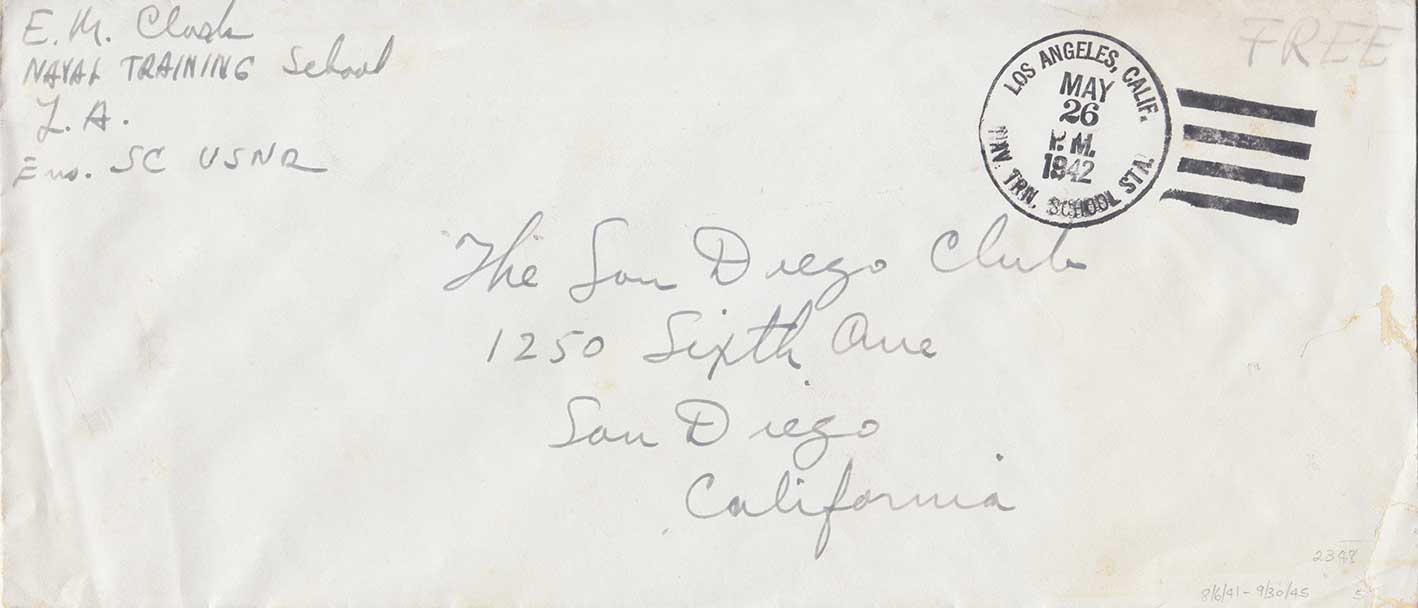 E. M. Clark
NAVAL TRAINING School
L. A.
Ens. SC USNR
FREE
LOS ANGELES, CALIF.
MAY
26
P.M.
1942
NAV. TRN. SCHOOL STA.
The San Diego Club
1250 Sixth Ave
San Diego
California
2348
8/6/41 - 9/30/45 5